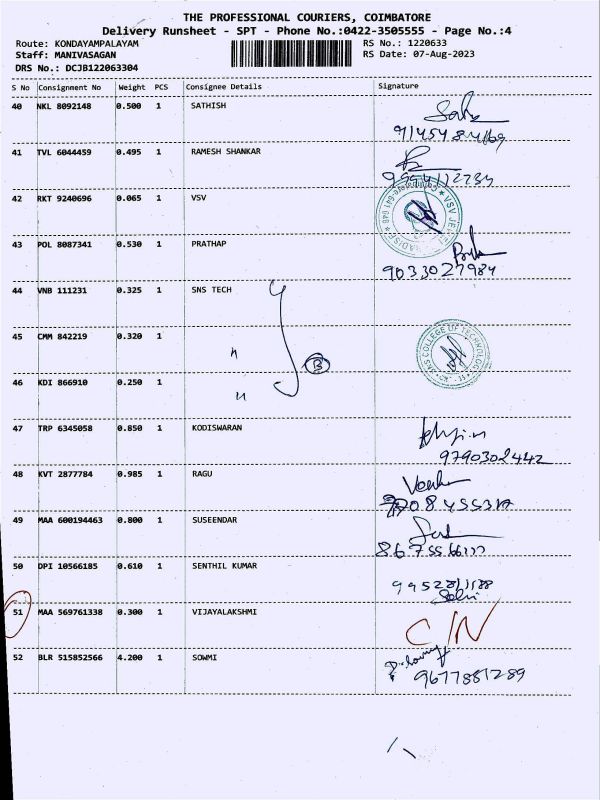 THE PROFESSIONAL COURIERS, COIMBATORE
Delivery Runsheet - SPT - Phone No.:0422-3505555 - Page No.:4
Route: KONDAYAMPALAYAM RS No.: 1220633
Staff: MANIVASAGAN RS Date: 07-Aug-2023
DRS No.: DCJB122063304
S No Consignment No Weight PCS Consignee Details Signature
40 NKL 8092148 0.500 1 SATHISH
41 TVL 6044459 0.495 1 RAMESH SHANKAR
42 RKT 9240696 0.065 1 VSV
43 POL 8087341 0.530 1 PRATHAP
9033027984
44 VNB 111231 0.325 1 SNS TECH
45 CMM 842219 0.320 1 "
SNS COLLEGE OF TECHNOLOGY
B
46 KDI 866910 0.250 1 "
47 TRP 6345058 0.850 1 KODISWARAN
9790302442
48 KVT 2877784 0.985 1 RAGU
49 MAA 600194463 0.800 1 SUSEENDAR
50 DPI 10566185 0.610 1 SENTHIL KUMAR
Selvi
51 MAA 569761338 0.300 1 VIJAYALAKSHMI C/N
52 BLR 515852566 4.200 1 SOWMI
9677881289